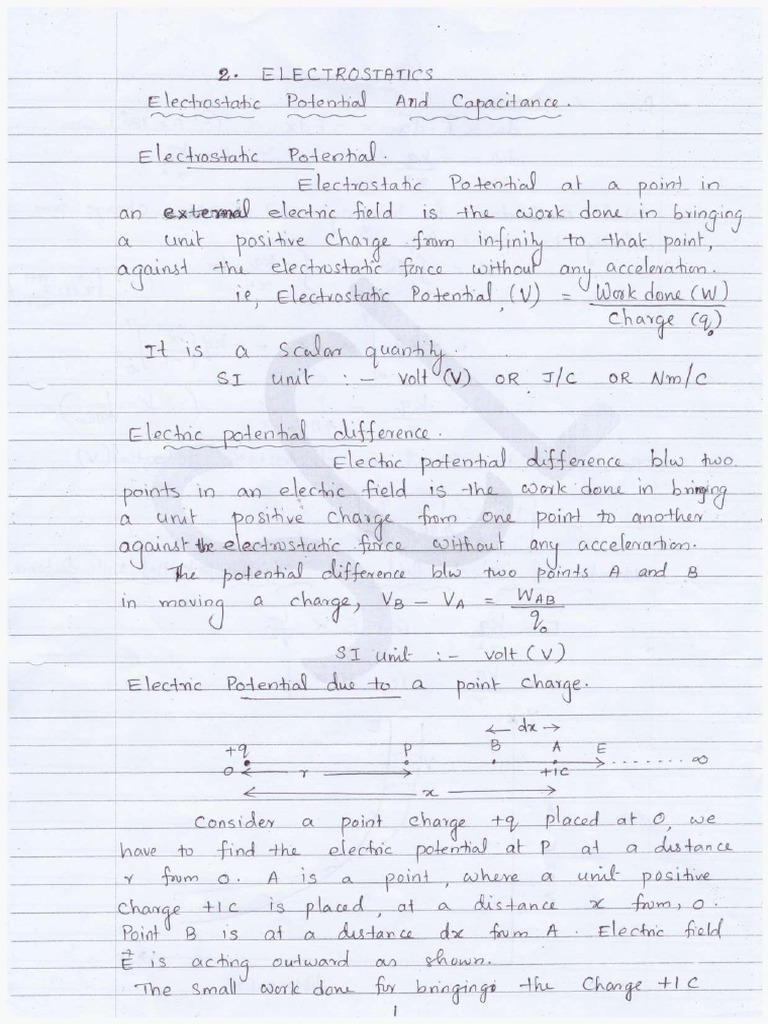 2. ELECTROSTATICS
Electrostatic Potential And Capacitance.
Electrostatic Potential.
Electrostatic Potential at a point in
an external electric field is the work done in bringing
a unit positive charge from infinity to that point,
against the electrostatic force without any acceleration.
ie, Electrostatic Potential, (V) = Work done (W) / Charge (q₀)
It is a scalar quantity.
SI unit :- volt (V) OR J/C OR Nm/C
Electric potential difference.
Electric potential difference b/w two
points in an electric field is the work done in bringing
a unit positive charge from one point to another
against the electrostatic force without any acceleration.
The potential difference b/w two points A and B
in moving a charge, V_B - V_A = W_AB / q₀
SI unit :- volt (V)
Electric Potential due to a point charge.
← dx →
+q P B A E
O ← r → +1C ....... ∞
← x →
Consider a point charge +q placed at O, we
have to find the electric potential at P at a distance
r from O. A is a point, where a unit positive
charge +1C is placed, at a distance x from, O.
Point B is at a distance dx from A. Electric field
E⃗ is acting outward as shown.
The small work done for bringing the charge +1C
1